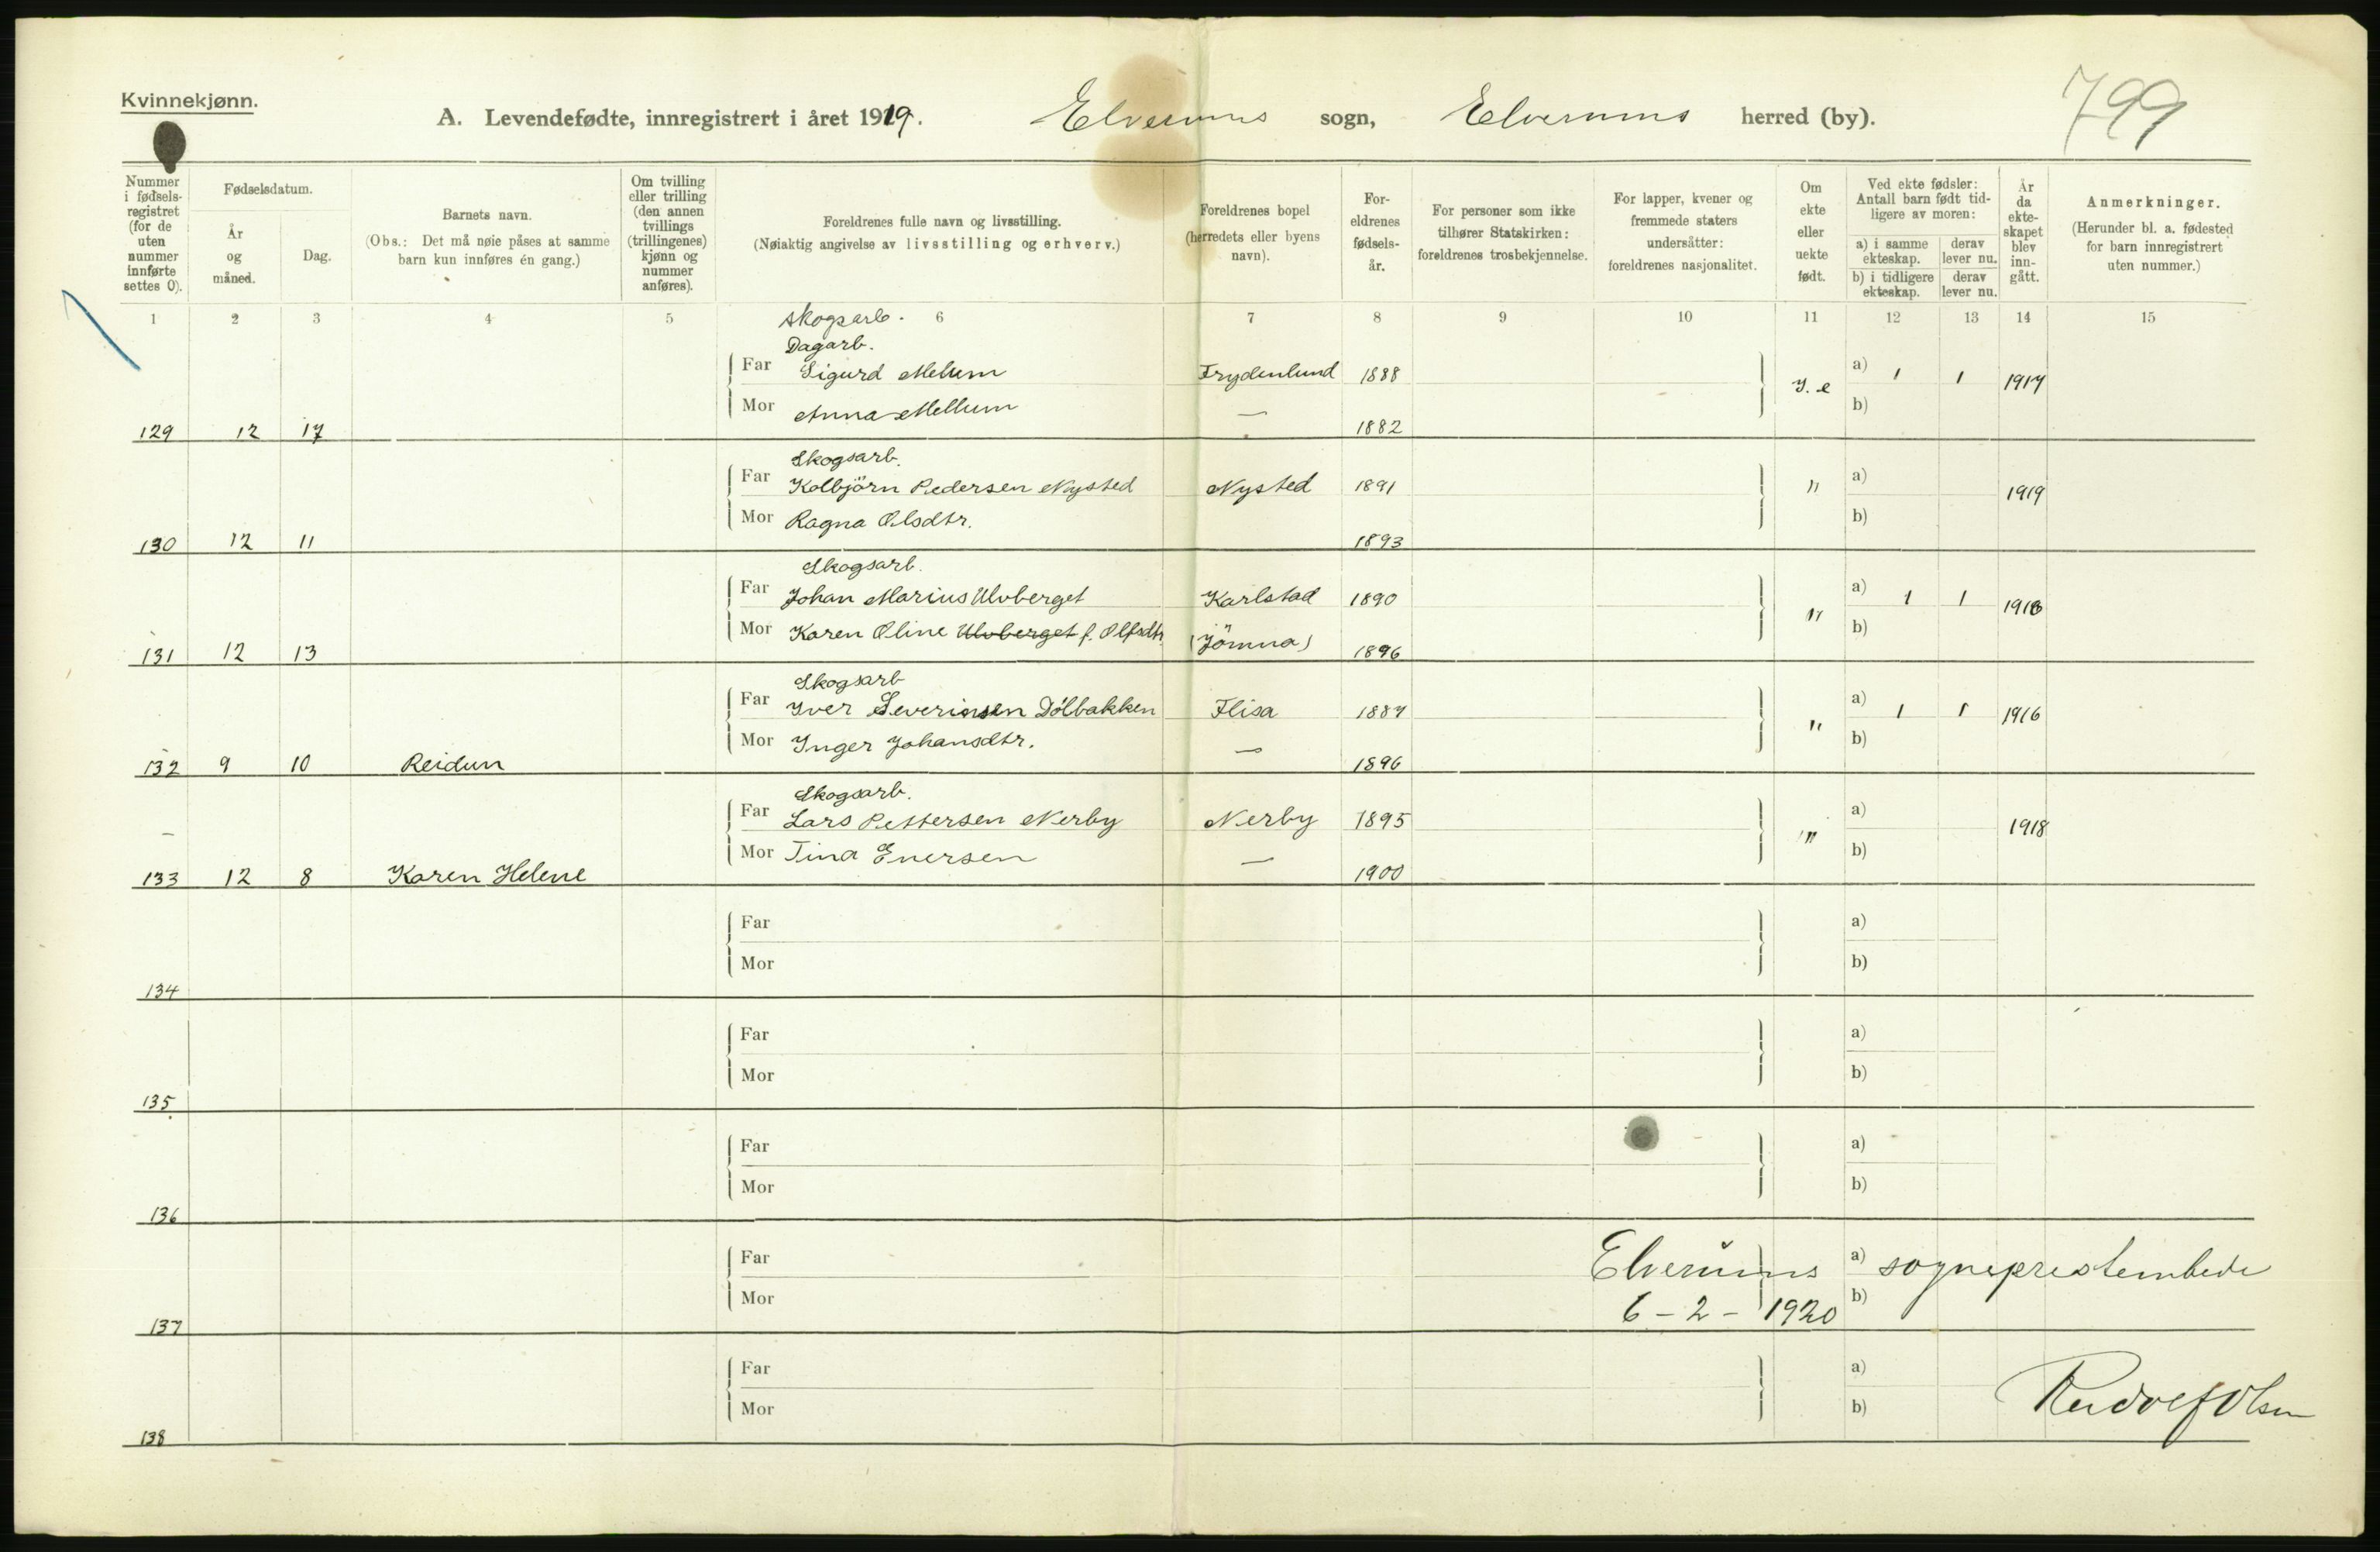 Kvinnekjønn.
A. Levendefødte, innregistrert i året 1919. Elverums sogn, Elverums herred (by). 799
Nummer i fødsels-registret (for de uten nummer innførte settes 0).
Fødselsdatum.
År og måned.
Dag.
Barnets navn.
(Obs.: Det må nøie påses at samme barn kun innføres én gang.)
Om tvilling eller trilling (den annen tvillings (trillingenes) kjønn og nummer anføres).
Foreldrenes fulle navn og livsstilling.
(Nøiaktig angivelse av livsstilling og erhverv.)
Foreldrenes bopel (herredets eller byens navn).
For-eldrenes fødsels-år.
For personer som ikke tilhører Statskirken: foreldrenes trosbekjennelse.
For lapper, kvener og fremmede staters undersåtter: foreldrenes nasjonalitet.
Om ekte eller uekte født.
Ved ekte fødsler: Antall barn født tid-ligere av moren:
a) i samme ekteskap. derav lever nu.
b) i tidligere ekteskap. derav lever nu.
År da ekte-skapet blev inn-gått.
Anmerkninger.
(Herunder bl. a. fødested for barn innregistrert uten nummer.)
1 2 3 4 5 6 7 8 9 10 11 12 13 14 15
Skogsarb.
Dagarb.
Far Sigurd Melum Frydenlund 1888 J. e a) 1 1 1917
Mor Anna Mellum — 1882 b)
129 12 17
Skogsarb.
Far Kolbjörn Pedersen Nysted Nysted 1891 " a) 1919
Mor Ragna Olsdtr. 1893 b)
130 12 11
Skogsarb.
Far Johan Marius Ulvberget Karlstad 1890 " a) 1 1 1918
Mor Karen Oline Ulvberget f. Olfsdtr. (Jömna) 1896 b)
131 12 13
Skogsarb
Far Iver Severinsen Dölbakken Flisa 1887 " a) 1 1 1916
Mor Inger Johansdtr. — 1896 b)
132 9 10 Reidun
Skogsarb.
Far Lars Pettersen Nerby Nerby 1895 " a) 1918
Mor Tina Enersen — 1900 b)
133 12 8 Karen Helene
Far a)
Mor b)
134
Far a)
Mor b)
135
Far a)
Mor b)
136
Far Elverums a) sogneprestembede
Mor 6 - 2 - 1920 b)
137
Far a)
Mor b) Rudolf Olsen
138